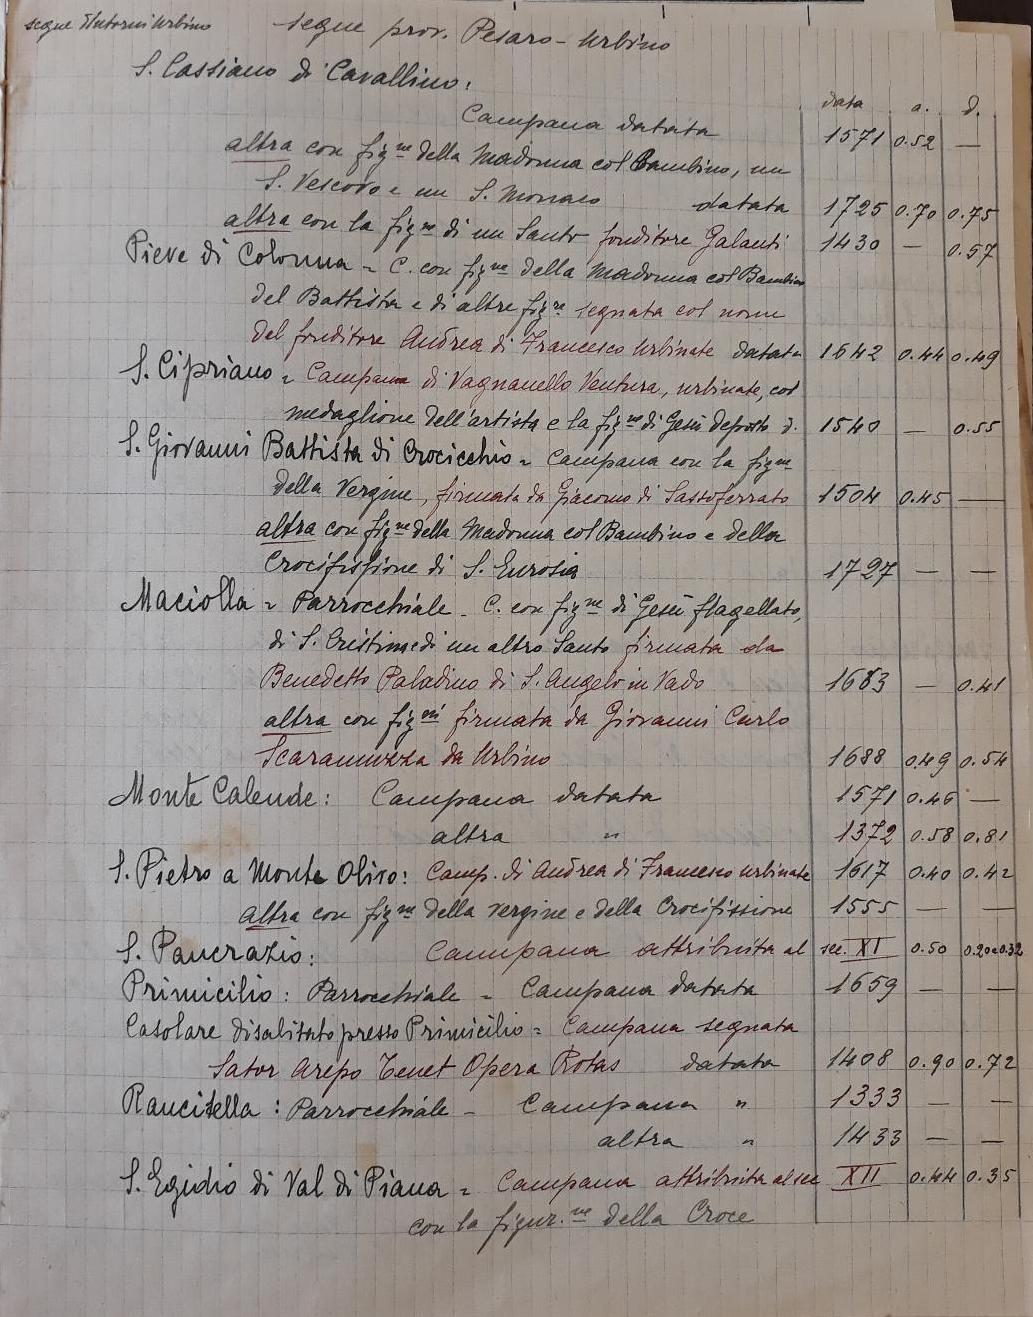 segue Dintorni Urbino segue prov. Pesaro-Urbino
S. Cassiano di Cavallino:
data a. d.
Campana datata 1571 0.52 —
altra con fig.ne della Madonna col Bambino, un
S. Vescovo e un S. Monaco datata 1725 0.70 0.75
altra con la fig.ne di un Santo fonditore Galanti 1430 — 0.57
Pieve di Colonna = C. con fig.ne della Madonna col Bambino
del Battista e di altre fig.re segnata col nome
del fonditore Andrea di Francesco Urbinate datata 1642 0.44 0.49
S. Cipriano = Campana di Vagnanello Ventura, urbinate, col
medaglione dell'artista e la fig.ne di Gesù deposto d. 1540 — 0.55
S. Giovanni Battista di Crocicchio = Campana con la fig.ne
della Vergine, firmata da Giacomo di Sassoferrato 1504 0.45 —
altra con fig.ne della Madonna col Bambino e della
Crocifissione di S. Eurosia 1727 — —
Maciolla = Parrocchiale - C. con fig.ne di Gesù flagellato,
di S. Cristina e di un altro Santo firmata da
Benedetto Paladino di S. Angelo in Vado 1683 — 0.41
altra con fig.ni firmata da Giovanni Carlo
Scaramuzza da Urbino 1688 0.49 0.54
Monte Calende: Campana datata 1571 0.46 —
altra " 1372 0.58 0.81
S. Pietro a Monte Olivo: Camp. di Andrea di Francesco Urbinate 1617 0.40 0.42
altra con fig.ne della Vergine e della Crocifissione 1555 — —
S. Pancrazio: Campana attribuita al sec. XI 0.50 0.20 e 0.32
Primicilio: Parrocchiale = Campana datata 1659 — —
Casolare disabitato presso Primicilio = Campana segnata
Sator Arepo Tenet Opera Rotas datata 1408 0.90 0.72
Rancitella: Parrocchiale - Campana " 1333 — —
altra " 1433 — —
S. Egidio di Val di Piana = Campana attribuita al sec XII 0.44 0.35
con la figur.ne della Croce